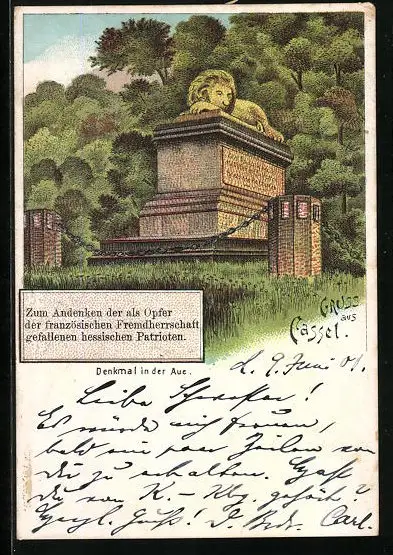 Zum Andenken der als Opfer
der französischen Fremdherrschaft
gefallenen hessischen Patrioten.
Gruss
aus
Cassel.
Denkmal in der Aue.
d. 9. Juni 01.
Liebe !
Es würde mich freuen,
bald ein paar Zeilen von
Dir zu erhalten. Hast
du von K. - Kbg. gehört?
Herzl. Gruß! D. Brdr. Carl.